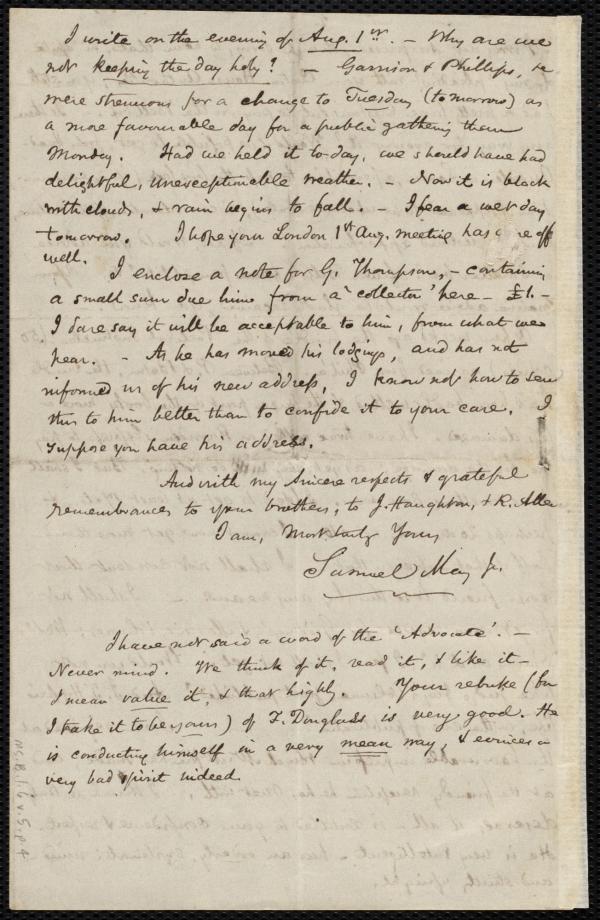 I write on the evening of Aug. 1st. - Why are we
not keeping the day holy? - Garrison & Phillips, &c
were strenuous for a change to Tuesday (tomorrow) as
a more favourable day for a public gathering than
Monday. Had we held it to-day, we should have had
delightful, unexceptionable weather. - Now it is black
with clouds, & rain begins to fall. - I fear a wet day
tomorrow. I hope your London 1st Aug. meeting has gone off
well.
I enclose a note for G. Thompson, - containing
a small sum due him from a 'collector' here - £1. -
I dare say it will be acceptable to him, from what we
hear. - As he has moved his lodgings, and has not
informed us of his new address, I know not how to send
this to him better than to confide it to your care. I
suppose you have his address.
And with my sincere respects & grateful
remembrances to your brothers, to J. Haughton, & R. Allen
I am, Most truly Yours
Samuel May Jr.
I have not said a word of the 'Advocate'. -
Never mind. We think of it, read it, & like it -
I mean value it, & that highly. Your rebuke (for
I take it to be yours) of F. Douglass is very good. He
is conducting himself in a very mean way, & evinces a
very bad spirit indeed.